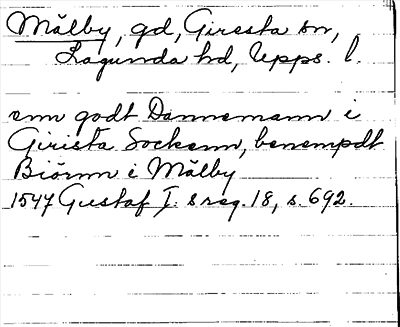 Målby, gd, Giresta sn,
Lagunda hd, Upps. l.
enn godt Dannemann i
Girista Sockenn, benempdt
Biörnn i Målby
1547 Gustaf I:s reg. 18, s. 692.